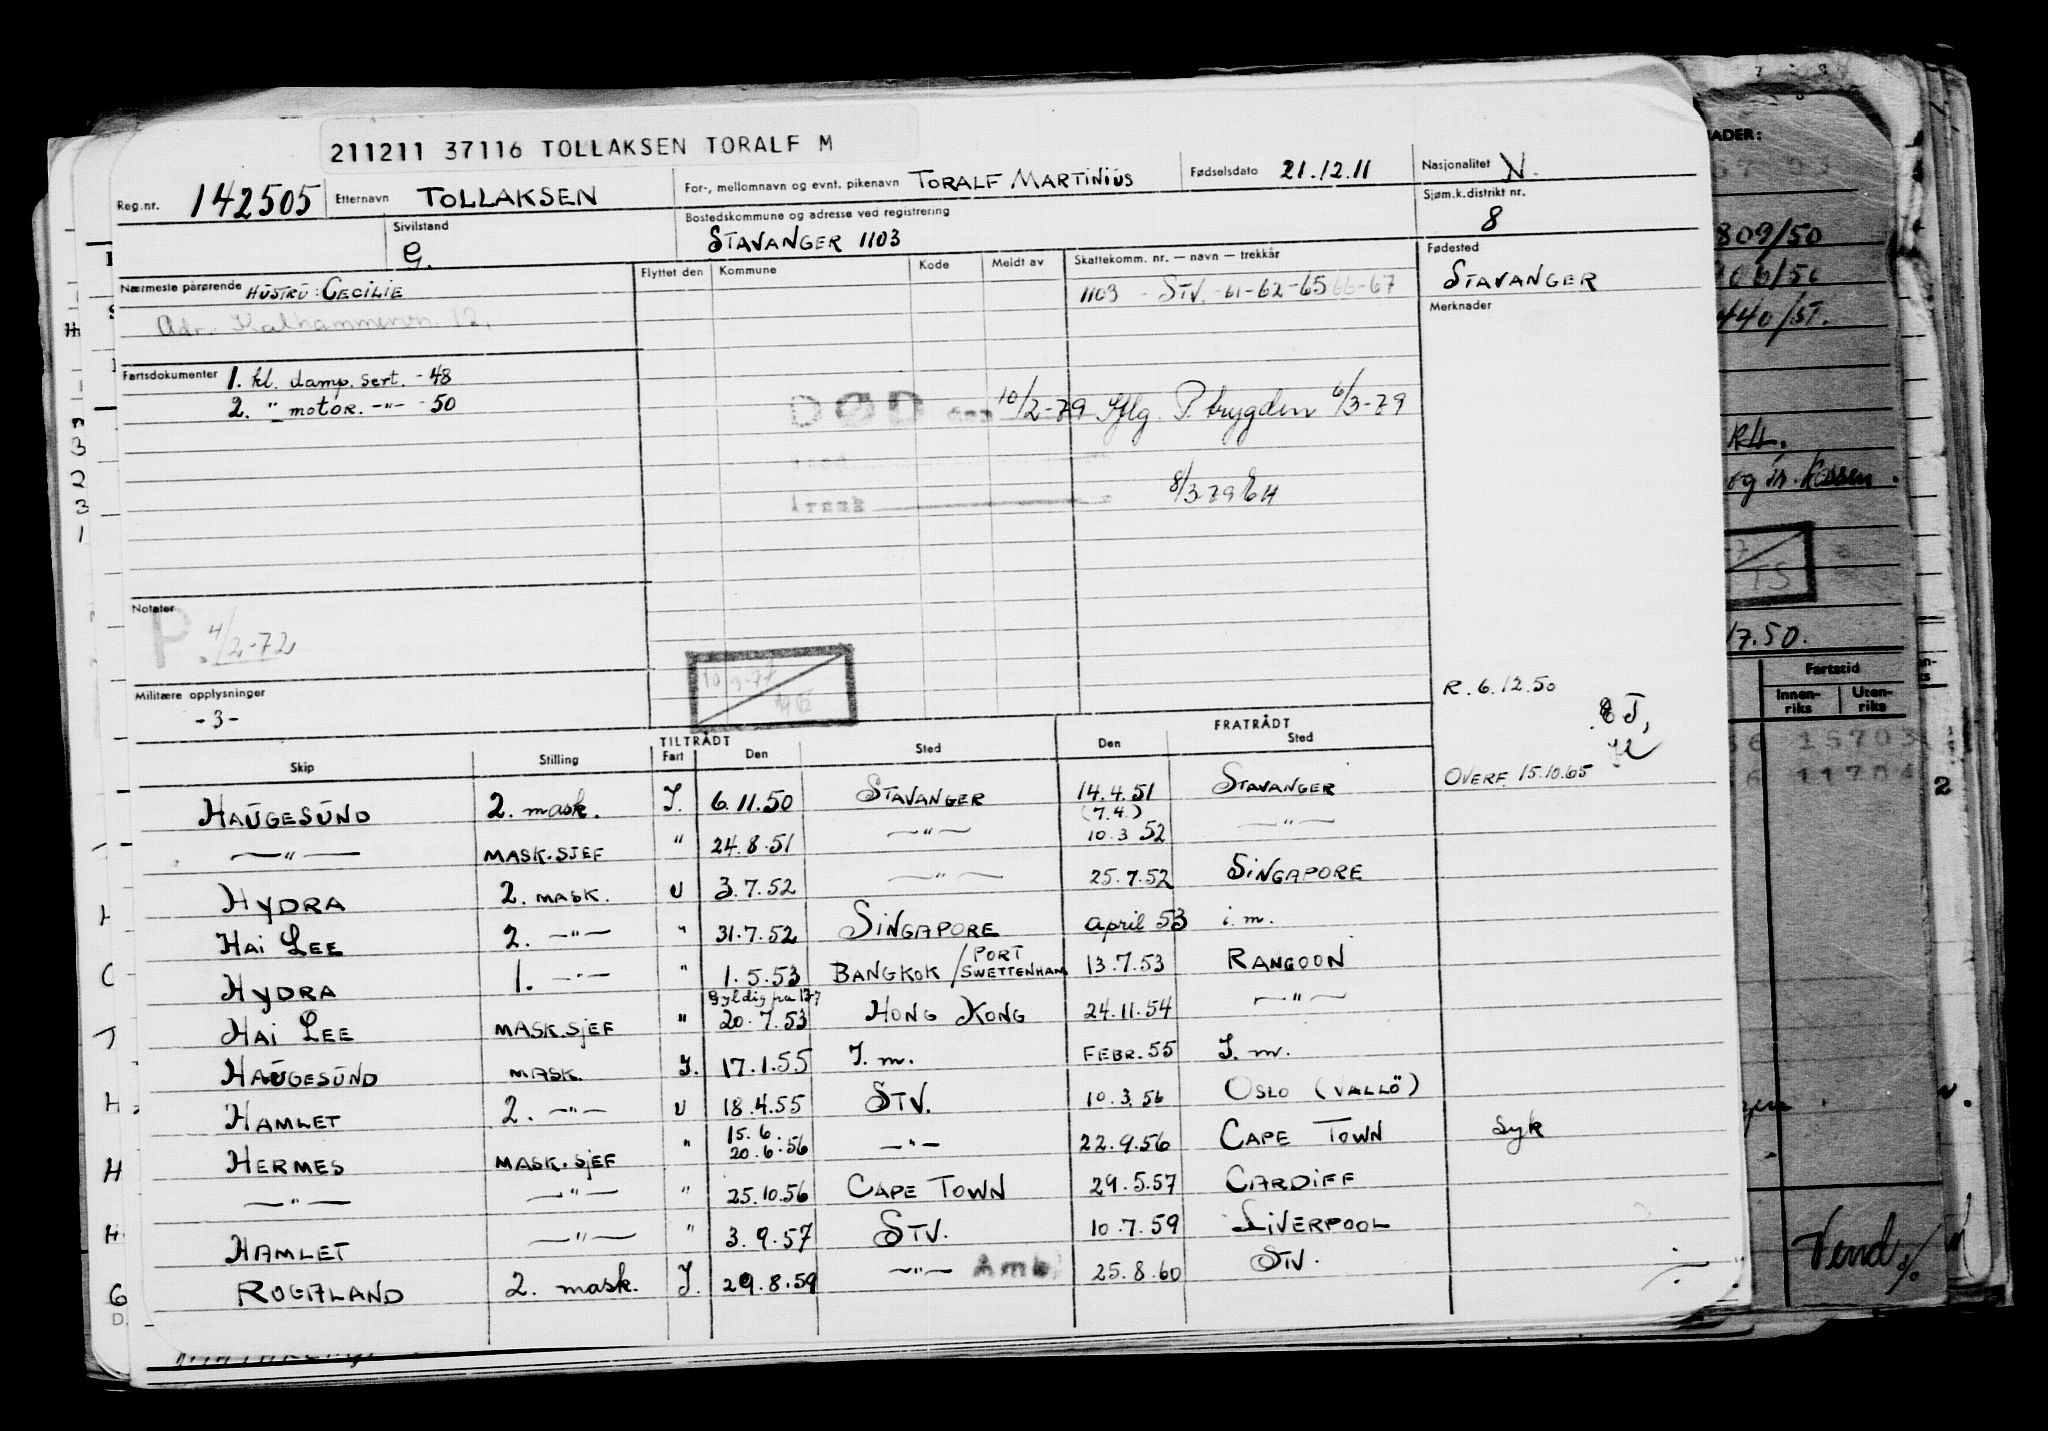 211211 37116 TOLLAKSEN TORALF M
Reg.nr. 142505 Etternavn TOLLAKSEN For-, mellomnavn og evnt. pikenavn TORALF MARTINIUS Fødselsdato 21.12.11 Nasjonalitet N.
Sivilstand G. Bostedskommune og adresse ved registrering STAVANGER 1103 Sjøm.k.distrikt nr. 8
Nærmeste pårørende HUSTRU: CECILIE Flyttet den Kommune Kode Meldt av Skattekomm. nr. — navn — trekkår Fødested STAVANGER
1103 - STV. -61-62-65 66-67
Adr. Kalhammervn. 12.
Merknader
Fartsdokumenter 1. kl. damp. sert. - 48
2. " motor. -"- - 50
DØD 10/2-79 P. trygden 6/3-79
8/3-79 EH
Notater
P. 4/2-72
Militære opplysninger
-3-
R. 6.12.50
TILTRÅDT FRATRÅDT
Skip Stilling Fart Den Sted Den Sted
OVERF. 15.10.65
HAUGESUND 2. mask. I. 6.11.50 STAVANGER 14.4.51 (7.4.) STAVANGER
—"— MASK.SJEF " 24.8.51 —"— 10.3.52 —"—
HYDRA 2. MASK. U 3.7.52 —"— 25.7.52 SINGAPORE
HAI LEE 2. —"— " 31.7.52 SINGAPORE april 53 i.m.
HYDRA 1. —"— " 1.5.53 BANGKOK / PORT SWETTENHAM 13.7.53 RANGOON
HAI LEE MASK.SJEF " Gyldig fra 17/7 20.7.53 HONG KONG 24.11.54 —"—
HAUGESUND MASK. I. 17.1.55 I.m. FEBR.55 I.m.
HAMLET 2. —"— U 18.4.55 STV. 10.3.56 OSLO (VALLÖ)
HERMES MASK.SJEF " 15.6. 20.6.56 —"— 22.9.56 CAPE TOWN Syk
—"— —"— " 25.10.56 CAPE TOWN 29.5.57 CARDIFF
HAMLET —"— " 3.9.57 STV. 10.7.59 LIVERPOOL
ROGALAND 2. mask. I. 29.8.59 —"— Amb. 25.8.60 STV.
809/50
440/51.
R.H.
17.50.
Fartstid
Innen-riks Uten-riks
15703
Vend